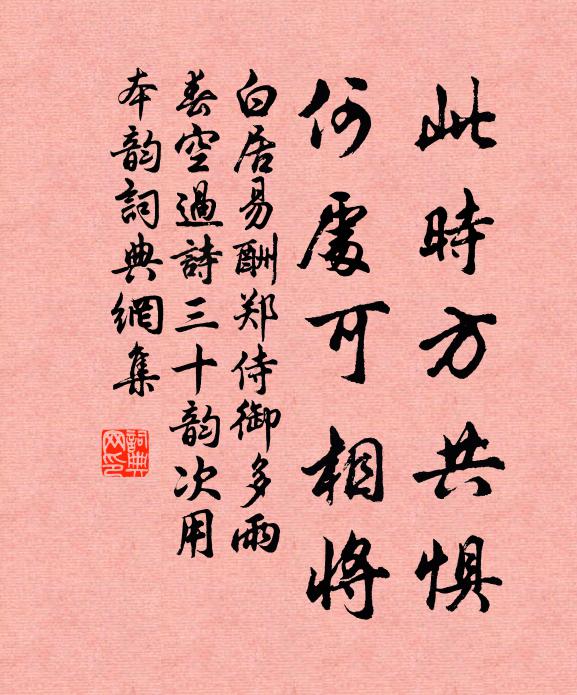 此時方共惧
何處可相將
白居易酬郑侍御多雨
春空過詩三十韵次用
本韵詞典網集
詞典网印